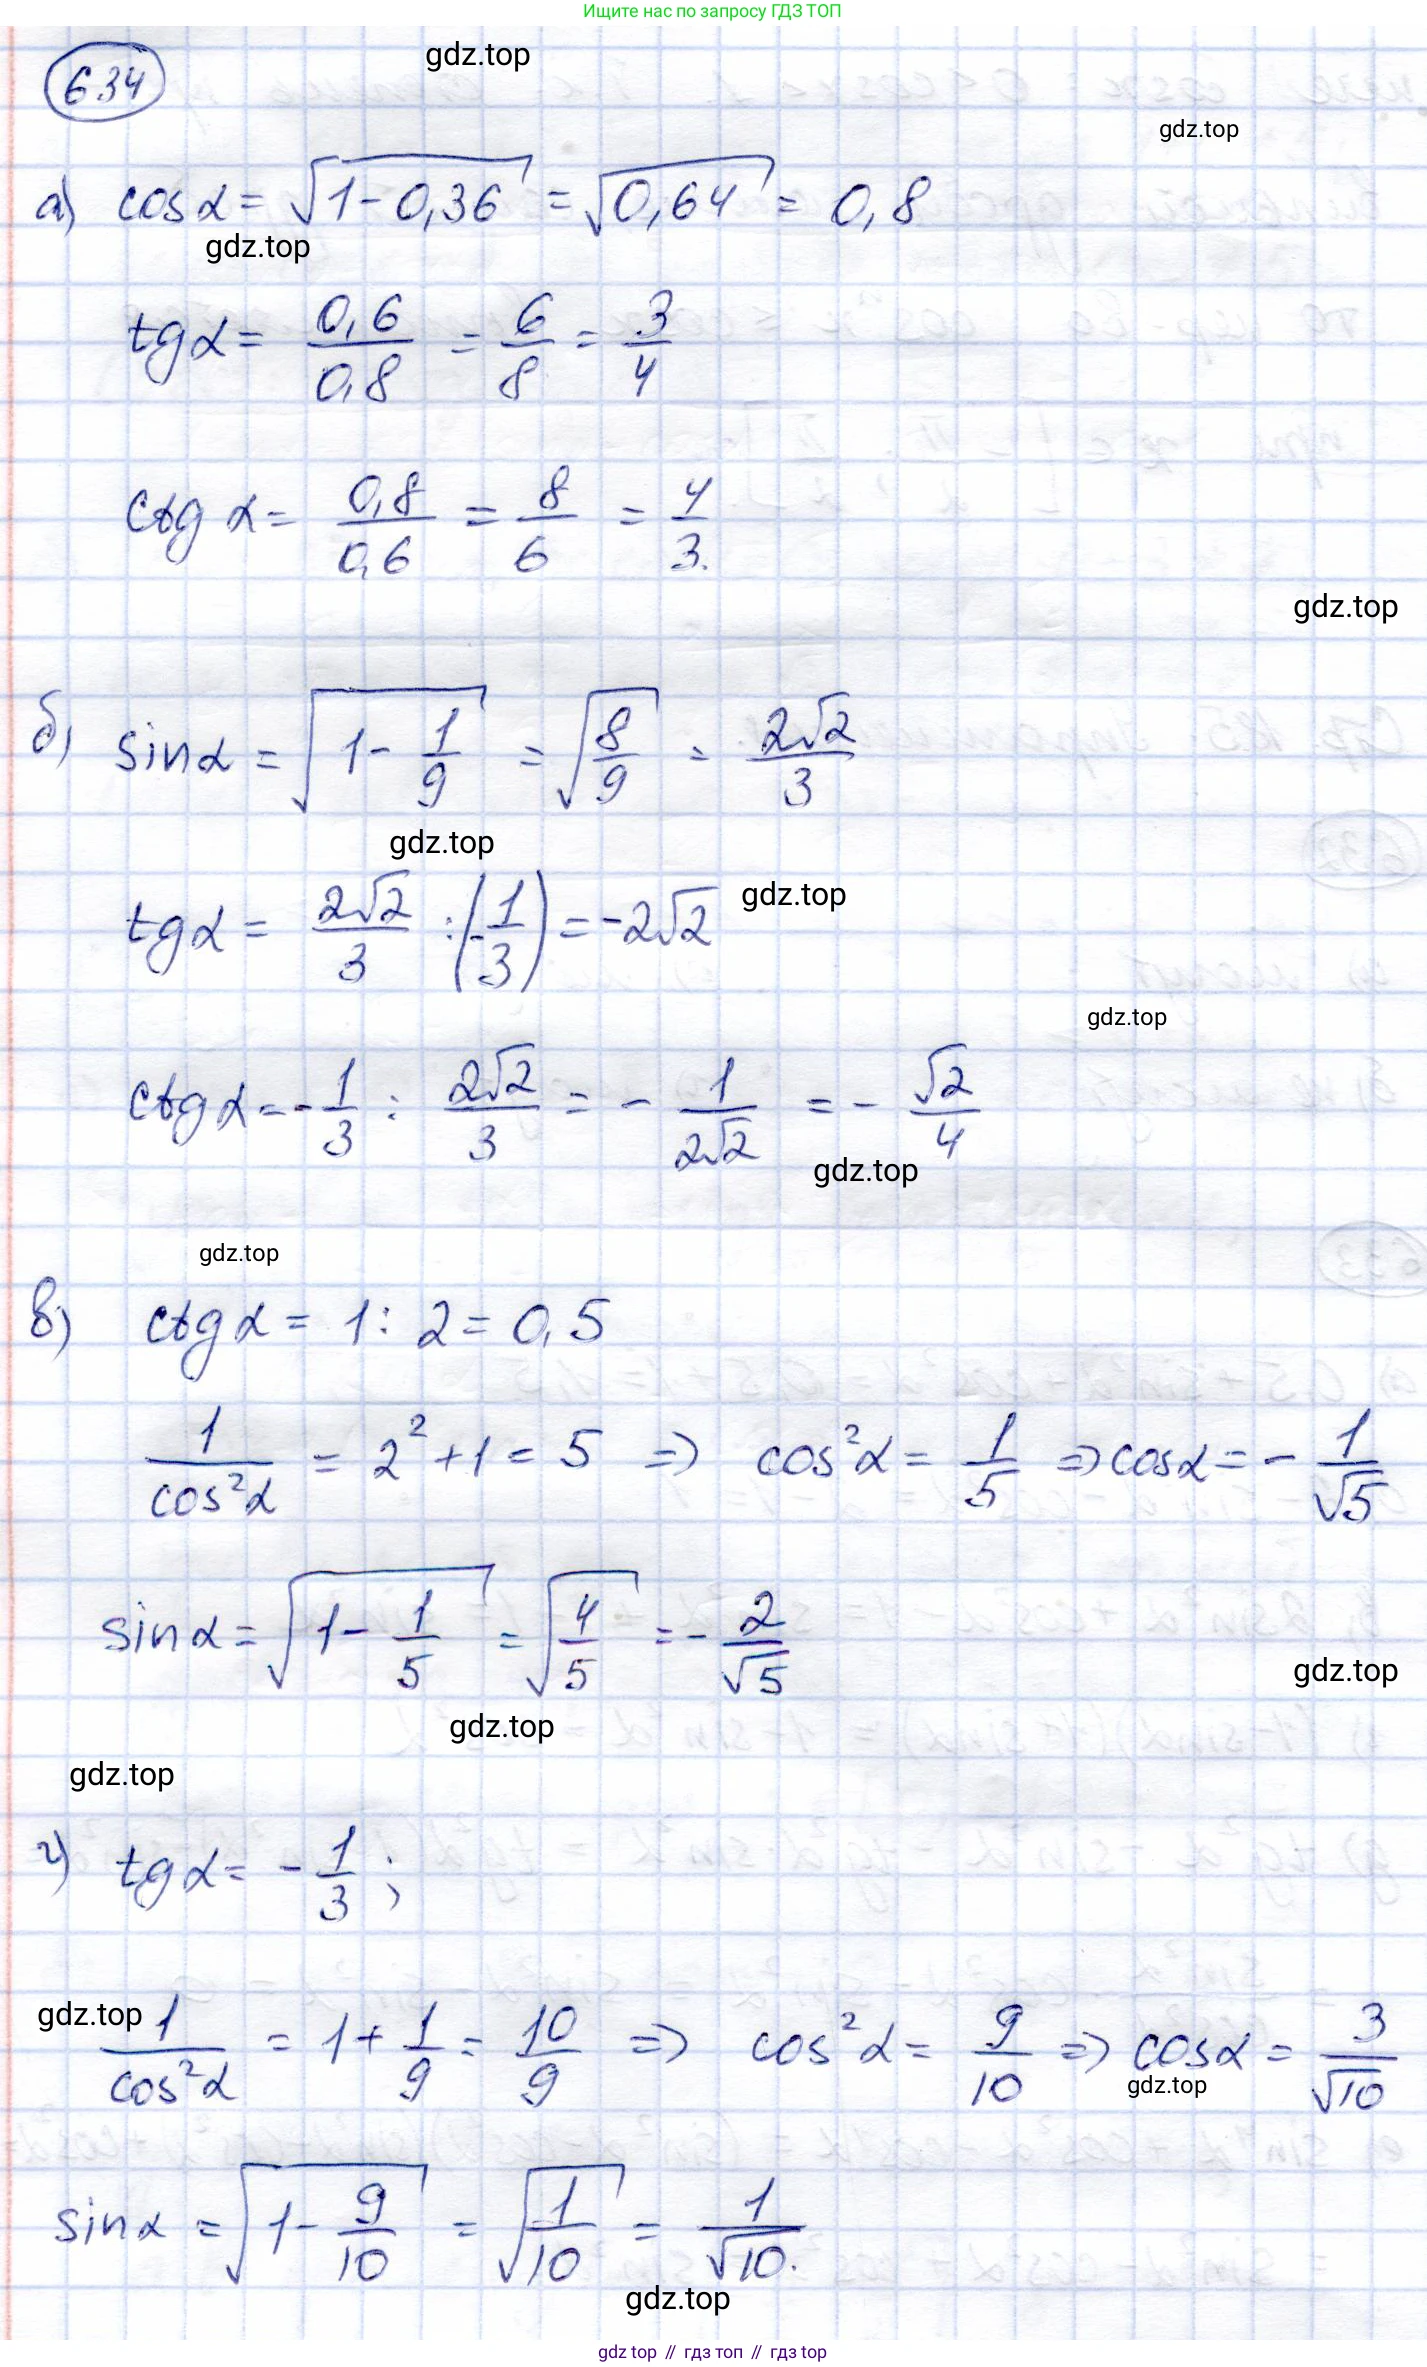 Ищите нас по запросу ГДЗ ТОП
634
gdz.top
gdz.top
а) cos α = √(1 - 0,36) = √(0,64) = 0,8
gdz.top
tg α = 0,6/0,8 = 6/8 = 3/4
ctg α = 0,8/0,6 = 8/6 = 4/3.
gdz.top
б) sin α = √(1 - 1/9) = √(8/9) = 2√2/3
gdz.top
tg α = 2√2/3 : (-1/3) = -2√2
gdz.top
gdz.top
ctg α = -1/3 : 2√2/3 = - 1/(2√2) = - √2/4
gdz.top
gdz.top
в) ctg α = 1 : 2 = 0,5
1/cos²α = 2² + 1 = 5 => cos²α = 1/5 => cos α = - 1/√5
sin α = √(1 - 1/5) = √(4/5) = - 2/√5
gdz.top
gdz.top
gdz.top
г) tg α = - 1/3 ;
gdz.top
1/cos²α = 1 + 1/9 = 10/9 => cos²α = 9/10 => cos α = 3/√10
gdz.top
sin α = √(1 - 9/10) = √(1/10) = 1/√10.
gdz.top
gdz top // гдз топ // гдз top